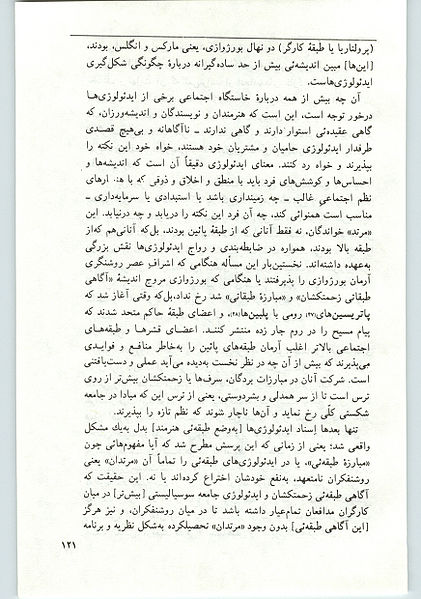 (پرولتاریا یا طبقهٔ کارگر) دو نهال بورژوازی، یعنی مارکس و انگلس، بودند،
[این‌ها] مبین اندیشه‌ئی بیش از حد ساده‌گیرانه دربارهٔ چگونگی شکل‌گیری
ایدئولوژی‌هاست.
آن چه بیش از همه دربارهٔ خاستگاه اجتماعی برخی از ایدئولوژی‌ها
درخور توجه است، این است که هنرمندان و نویسندگان و اندیشه‌ورزان، که
گاهی عقیده‌ئی استوار دارند و گاهی ندارند ـ ناآگاهانه و بی‌هیچ قصدی
طرفدار ایدئولوژی حامیان و مشتریان خود هستند، خواه خود این نکته را
بپذیرند و خواه رد کنند. معنای ایدئولوژی دقیقاً آن است که اندیشه‌ها و
احساس‌ها و کوشش‌های فرد باید با منطق و اخلاق و ذوقی که با
نظم اجتماعی غالب ـ چه زمینداری باشد یا استبدادی یا سرمایه‌داری ـ
مناسب است همنوائی کند، چه آن فرد این نکته را دریابد و چه درنیابد. این
«مرتد» خواندگان، نه فقط آنانی که از طبقهٔ پائین بودند، بل‌که آنانی‌هم که‌از
طبقه بالا بودند، همواره در ضابطه‌بندی و رواج ایدئولوژی‌ها نقش بزرگی
به‌عهده داشته‌اند. نخستین‌بار این مسأله هنگامی که اشراف عصر روشنگری
آرمان بورژوازی را پذیرفتند یا هنگامی که بورژوازی مروج اندیشهٔ «آگاهی
طبقاتی زحمتکشان» و «مبارزهٔ طبقاتی» شد رخ نداد،بل‌که وقتی آغاز شد که
پاتریسین‌های(۲۷) رومی با پلبین‌ها(۲۸)، و اعضای طبقهٔ حاکم متحد شدند که
پیام مسیح را در روم جار زده منتشر کنند. اعضای قشرها و طبقه‌های
اجتماعی بالاتر اغلب آرمان طبقه‌های پائین را به‌خاطر منافع و فوایدی
می‌پذیرند که بیش از آن چه در نظر نخست به‌دیده می‌آید عملی و دست‌یافتنی
است. شرکت آنان در مبارزات بردگان، سرف‌ها یا زحمتکشان بیش‌تر از روی
ترس است تا از سر همدلی و بشردوستی، یعنی از ترس این که مبادا در جامعه
شکستی کلّی رخ نماید و آن‌ها ناچار شوند که نظم تازه را بپذیرند.
تنها بعدها اِسناد ایدئولوژی‌ها [به‌وضع طبقه‌ئی هنرمند] بدل به‌یك مشکل
واقعی شد؛ یعنی از زمانی که این پرسش مطرح شد که آیا مفهوم‌هائی چون
«مبارزهٔ طبقه‌ئی»، یا در ایدئولوژی‌های طبقه‌ئی را تماماً آن «مرتدان» یعنی
روشنفکران نامتعهد، به‌نفع خودشان اختراع کرده‌اند یا نه. این حقیقت که
آگاهی طبقه‌ئی زحمتکشان و ایدئولوژی جامعه سوسیالیستی [بیش‌تر] در میان
کارگران مدافعان تمام‌عیار داشته باشد تا در میان روشنفکران، و نیز هرگز
[این آگاهی طبقه‌ئی] بدون وجود «مرتدان» تحصیلکرده به‌شکل نظریه و برنامه
۱۲۱